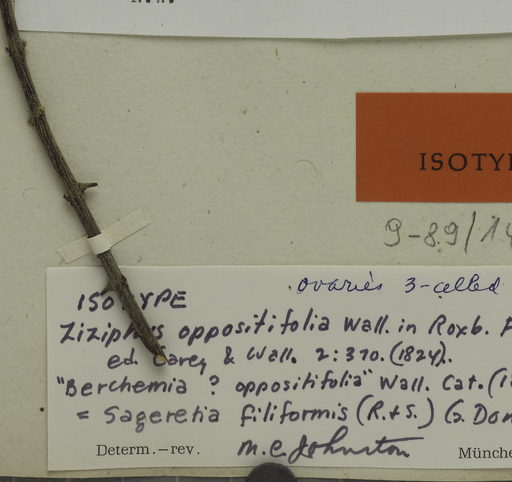 ISOTYP
9-89/14
ovaries 3-celled
ISOTYPE
Ziziphus oppositifolia Wall. in Roxb. F
ed. Carey & Wall. 2:370. (1824).
"Berchemia ? oppositifolia" Wall. Cat. (1
= Sageretia filiformis (R.+S.) G. Don
Determ.—rev. M.C. Johnston Münche